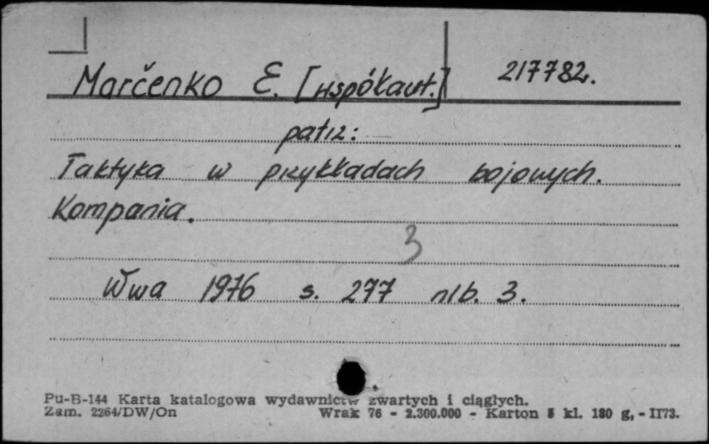 Marčenko E. [współaut.] 217782.
patrz:
Taktyka w przykładach bojowych.
Kompania.
3
Wwa 1976 s. 277 nlb. 3.
Pu-B-144 Karta katalogowa wydawnictw zwartych i ciągłych.
Zam. 2264/DW/On Wrak 76 - 2.300.000 - Karton 5 kl. 180 g, - II73.